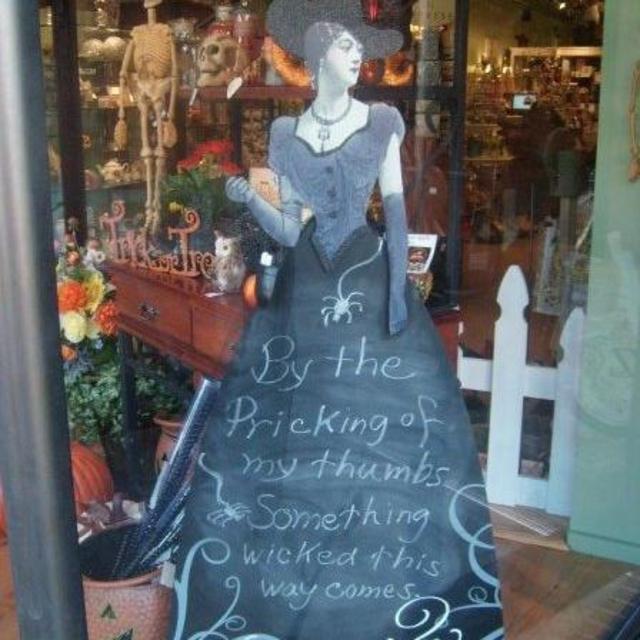 Trick or Treat
By the
Pricking of
my thumbs
Something
wicked this
way comes.